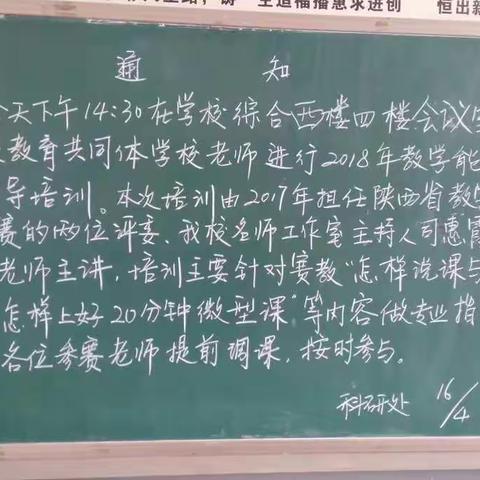 通 知
今天下午14:30在学校综合西楼四楼会议室
教育共同体学校老师进行2018年教学能
导培训。本次培训由2017年担任陕西省教学
赛的两位评委、我校名师工作室主持人司惠霞
老师主讲，培训主要针对赛教“怎样说课与
怎样上好20分钟微型课”等内容做专业指
各位参赛老师提前调课，按时参与。
科研处 16/4